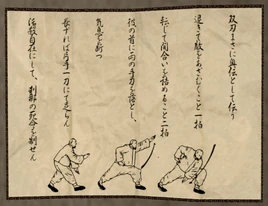 反刃まさに奥伝として伝う
退きて敵をあざむくこと一拍
転じて間合いを詰めること二拍
彼の首に両の手刀を落とし、
気息を断つ
長ずれば片手一刀にて足らん
活殺自在にして、刹那の死命を制せん